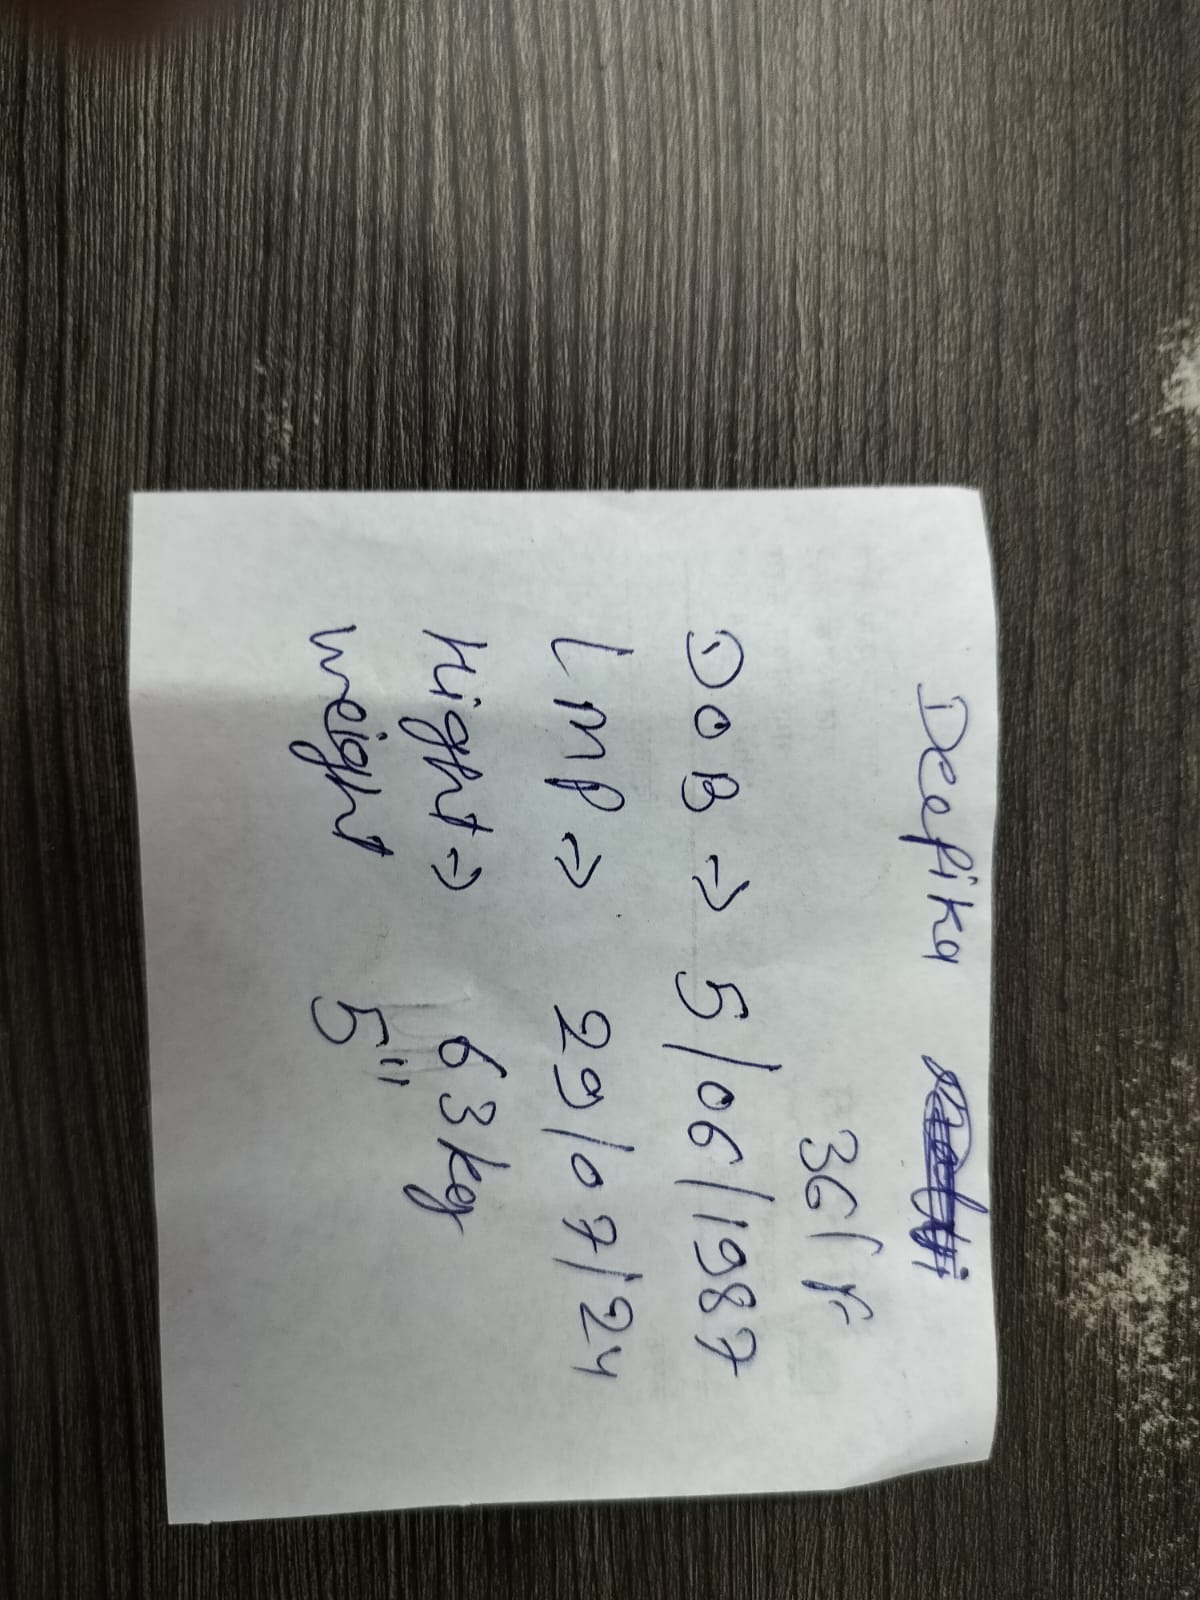 Deepika
36/F
DOB → 5/06/1987
LMP ⇒ 29/07/24
Hight ⇒ 63kg
weight 5"